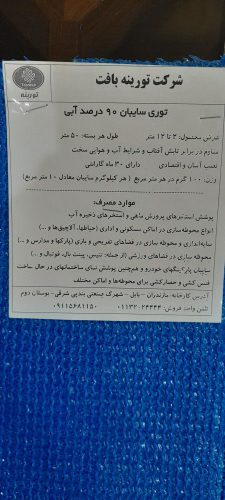 شرکت تورینه بافت
تورینه
توری سایبان ۹۰ درصد آبی
عرض محصول: ۲ تا ۱۲ متر طول هر بسته: ۵۰ متر
مقاوم در برابر تابش آفتاب و شرایط آب و هوایی سخت
نصب آسان و اقتصادی دارای ۳۰ ماه گارانتی
وزن: ۱۰۰ گرم در هر متر مربع ( هر کیلوگرم سایبان معادل ۱۰ متر مربع)
موارد مصرف:
پوشش استخرهای پرورش ماهی و استخرهای ذخیره آب
انواع محوطه‌سازی در اماکن مسکونی و اداری (حیاطها، آلاچیق‌ها و ...)
سایه‌اندازی و محوطه سازی در فضاهای تفریحی و بازی (پارکها و مدارس و ...)
محوطه سازی در فضاهای ورزشی (از جمله: تنیس، پینت بال، فوتبال و ...)
سایبان پارکینگهای خودرو و همچنین پوشش نمای ساختمانهای در حال ساخت
فنس کشی و حصارکشی برای محوطه‌ها و اماکن مختلف
آدرس کارخانه: مازندران - بابل - شهرک صنعتی بندپی شرقی- بوستان دوم
تلفن واحد فروش: ۰۱۱۳۲۰۲۴۴۴۴ - ۰۹۱۱۵۶۸۱۱۵۰